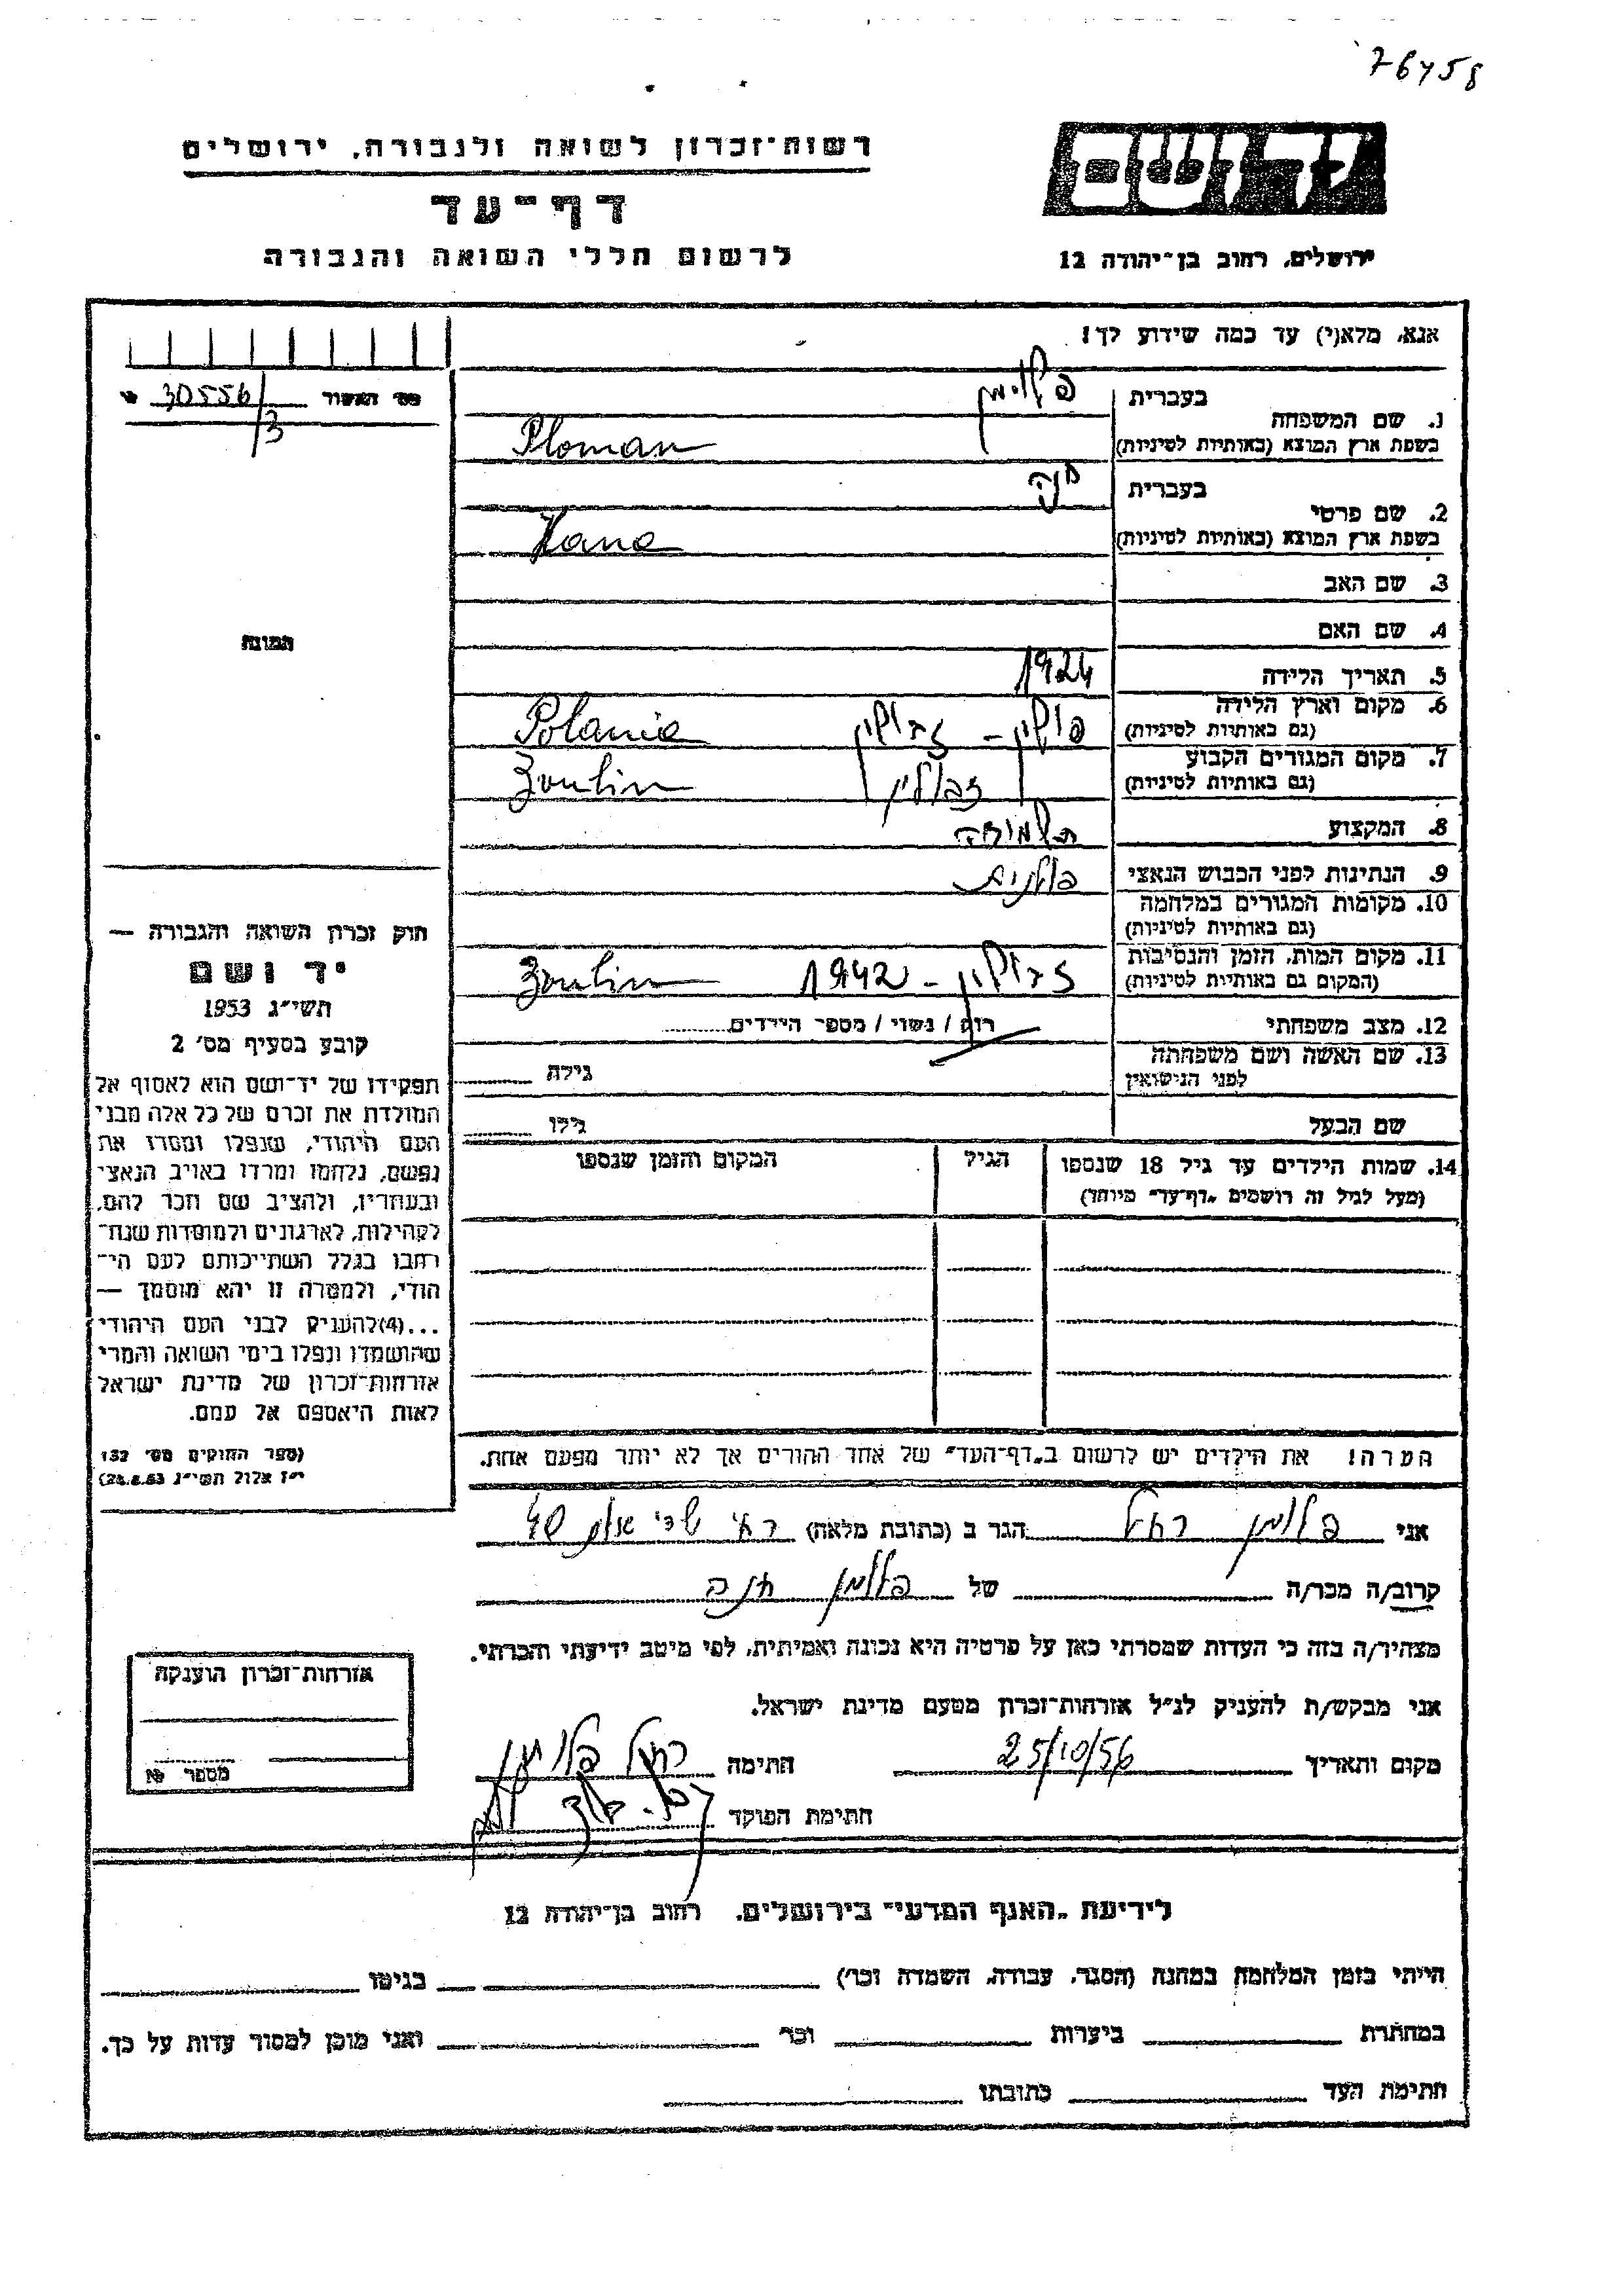 76458
יד ושם
רשות־זכרון לשואה ולגבורה, ירושלים
דף־עד
לרשום חללי השואה והגבורה
ירושלים, רחוב בן־יהודה 12
אנא, מלא(י) עד כמה שידוע לך!
מס' האשור 30556/3
1. שם המשפחה
בעברית פלומן
בשפת ארץ המוצא (באותיות לטיניות) Ploman
2. שם פרטי
בעברית חנה
בשפת ארץ המוצא (באותיות לטיניות) Hana
3. שם האב
4. שם האם
התמונה
5. תאריך הלידה 1924
6. מקום וארץ הלידה (גם באותיות לטיניות) פולין - Polania
7. מקום המגורים הקבוע (גם באותיות לטיניות) Zoulin
8. המקצוע תלמידה
9. הנתינות לפני הכבוש הנאצי פולנית
10. מקומות המגורים במלחמה
(גם באותיות לטיניות)
11. מקום המות, הזמן והנסיבות
(המקום גם באותיות לטיניות) 1942 - Zoulin
12. מצב משפחתי רוק / נשוי / מספר הילדים
13. שם האשה ושם משפחתה לפני הנישואין גילה
שם הבעל גילו
14. שמות הילדים עד גיל 18 שנספו הגיל המקום והזמן שנספו
(מעל לגיל זה רושמים „דף־עד" מיוחד)
חוק זכרון השואה והגבורה —
יד ושם
תשי"ג 1953
קובע בסעיף מס' 2
תפקידו של יד־ושם הוא לאסוף אל
המולדת את זכרם של כל אלה מבני
העם היהודי, שנפלו ומסרו את
נפשם, נלחמו ומרדו באויב הנאצי
ובעוזריו, ולהציב שם וזכר להם,
לקהילות, לארגונים ולמוסדות שנח־
רבו בגלל השתייכותם לעם הי־
הודי, ולמטרה זו יהא מוסמך —
...(4) להעניק לבני העם היהודי
שהושמדו ונפלו בימי השואה והמרי
אזרחות־זכרון של מדינת ישראל
לאות היאספם אל עמם.
(ספר החוקים מס' 132
י"ז אלול תשי"ג 28.8.53)
הערה! את הילדים יש לרשום ב„דף־העד" של אחד ההורים אך לא יותר מפעם אחת.
אני פלומן רחל הגר ב (כתובת מלאה)
קרוב/ה מכר/ה של פלומן חנה
מצהיר/ה בזה כי העדות שמסרתי כאן על פרטיה היא נכונה ואמיתית, לפי מיטב ידיעתי והכרתי.
אני מבקש/ת להעניק לנ"ל אזרחות־זכרון מטעם מדינת ישראל.
מקום ותאריך 25/10/56 חתימה רחל פלומן
חתימת הפוקד
אזרחות־זכרון הוענקה
מספר №
לידיעת „האגף המדעי" בירושלים, רחוב בן־יהודה 12
הייתי בזמן המלחמה במחנה (הסגר, עבודה, השמדה וכו') בגיטו
במחתרת ביערות וכו' ואני מוכן למסור עדות על כך.
חתימת העד כתובתו